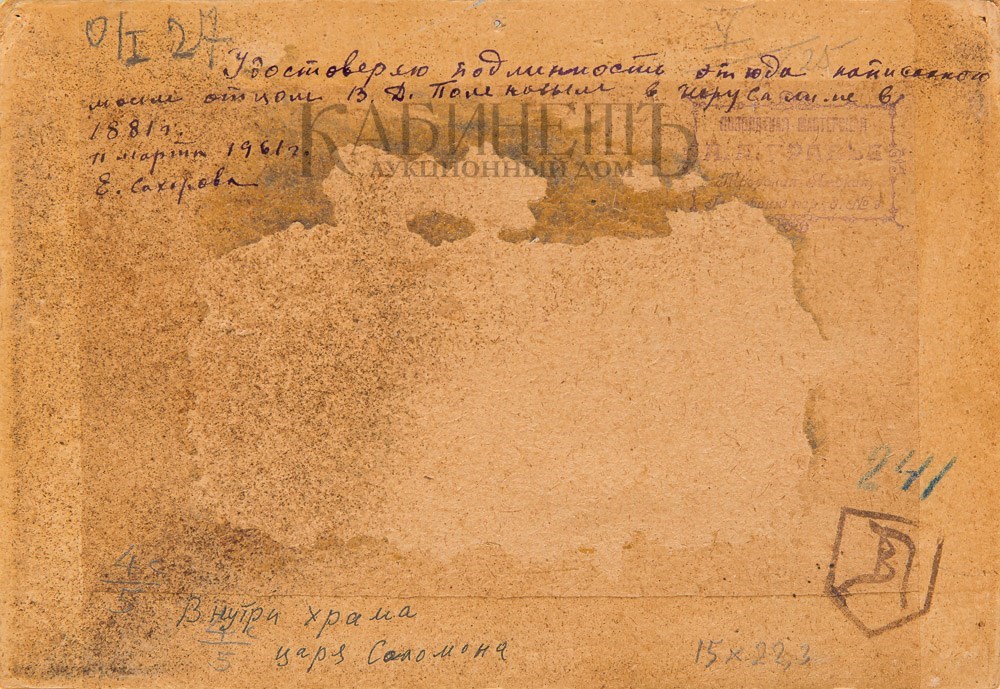 0/I 27
Удостоверяю подлинность этюда написанного
моим отцом В Д. Поленовым в Иерусалиме в
1881 г.
11 марта 1961 г.
Е. Сахарова
КАБИНЕТЪ
АУКЦИОННЫЙ ДОМ
241
4
5
Внутри храма
5
царя Соломона
15 x 22,3